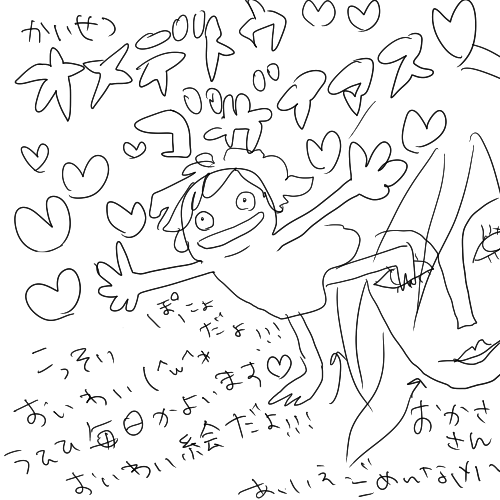 かいせつ
オメデトウ
ゴザイマス
ぽにょ
だよ!!!
おいわい(^w^*
うひひ毎日かよいます♡
おいわい絵だよ!!!
おかさ
さん
ごめんなさい